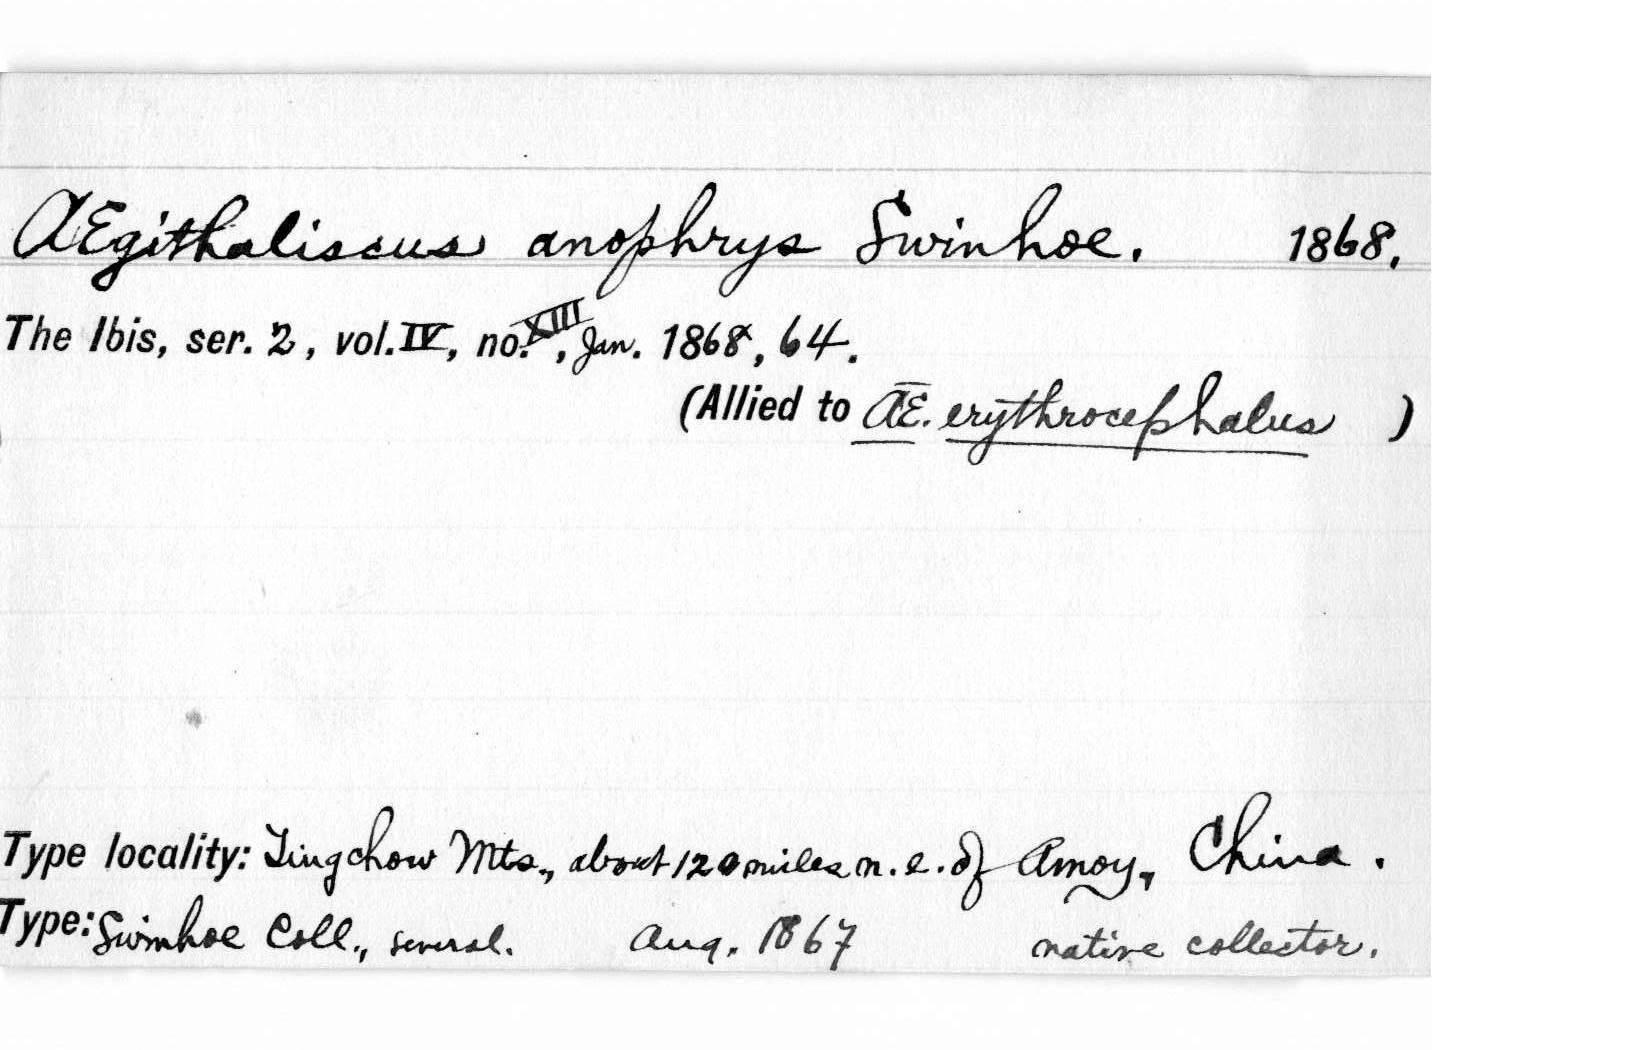 Ægithaliscus anophrys Swinhoe. 1868.
The Ibis, ser. 2, vol. IV, no. XIII, Jan. 1868, 64.
(Allied to Æ. erythrocephalus )
Type locality: Tingchow Mts., about 120 miles n.e. of Amoy, China.
Type: Swinhoe Coll., several. Aug. 1867 native collector.